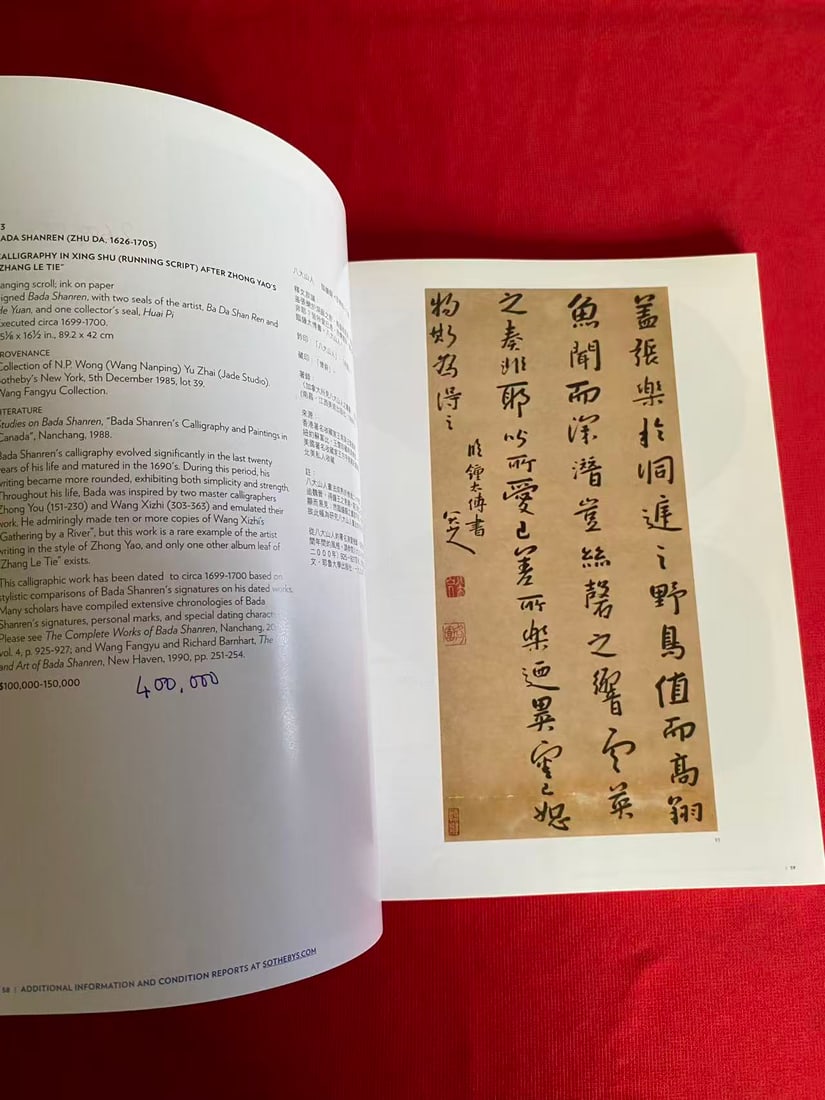 3
ADA SHANREN (ZHU DA, 1626-1705)
CALLIGRAPHY IN XING SHU (RUNNING SCRIPT) AFTER ZHONG YAO'S
"ZHANG LE TIE"
anging scroll; ink on paper
igned Bada Shanren, with two seals of the artist, Ba Da Shan Ren and
He Yuan, and one collector's seal, Huai Pi
Executed circa 1699-1700.
5⅛ x 16½ in., 89.2 x 42 cm
PROVENANCE
Collection of N.P. Wong (Wang Nanping) Yu Zhai (Jade Studio).
Sotheby's New York, 5th December 1985, lot 39.
Wang Fangyu Collection.
LITERATURE
Studies on Bada Shanren, "Bada Shanren's Calligraphy and Paintings in
Canada", Nanchang, 1988.
Bada Shanren's calligraphy evolved significantly in the last twenty
years of his life and matured in the 1690's. During this period, his
writing became more rounded, exhibiting both simplicity and strength.
Throughout his life, Bada was inspired by two master calligraphers
Zhong You (151-230) and Wang Xizhi (303-363) and emulated their
work. He admiringly made ten or more copies of Wang Xizhi's
"Gathering by a River", but this work is a rare example of the artist
writing in the style of Zhong Yao, and only one other album leaf of
"Zhang Le Tie" exists.
This calligraphic work has been dated to circa 1699-1700 based on
stylistic comparisons of Bada Shanren's signatures on his dated works.
Many scholars have compiled extensive chronologies of Bada
Shanren's signatures, personal marks, and special dating charact
Please see The Complete Works of Bada Shanren, Nanchang, 20
vol. 4, p. 925-927; and Wang Fangyu and Richard Barnhart, The
and Art of Bada Shanren, New Haven, 1990, pp. 251-254.
$100,000-150,000
400,000
八大山人
釋文
鈐印：「八大山人」
藏印：
著錄：
來源：
香港著名收藏家王
北美私人收藏
註：
58 | ADDITIONAL INFORMATION AND CONDITION REPORTS AT SOTHEBYS.COM
蓋張樂於洞庭之野鳥值而高翔
魚聞而深潛豈絲磬之響雲英
之奏非耶此所愛已善所樂迺異實已恕
物斯為得之
臨鍾太傅書
八大山人